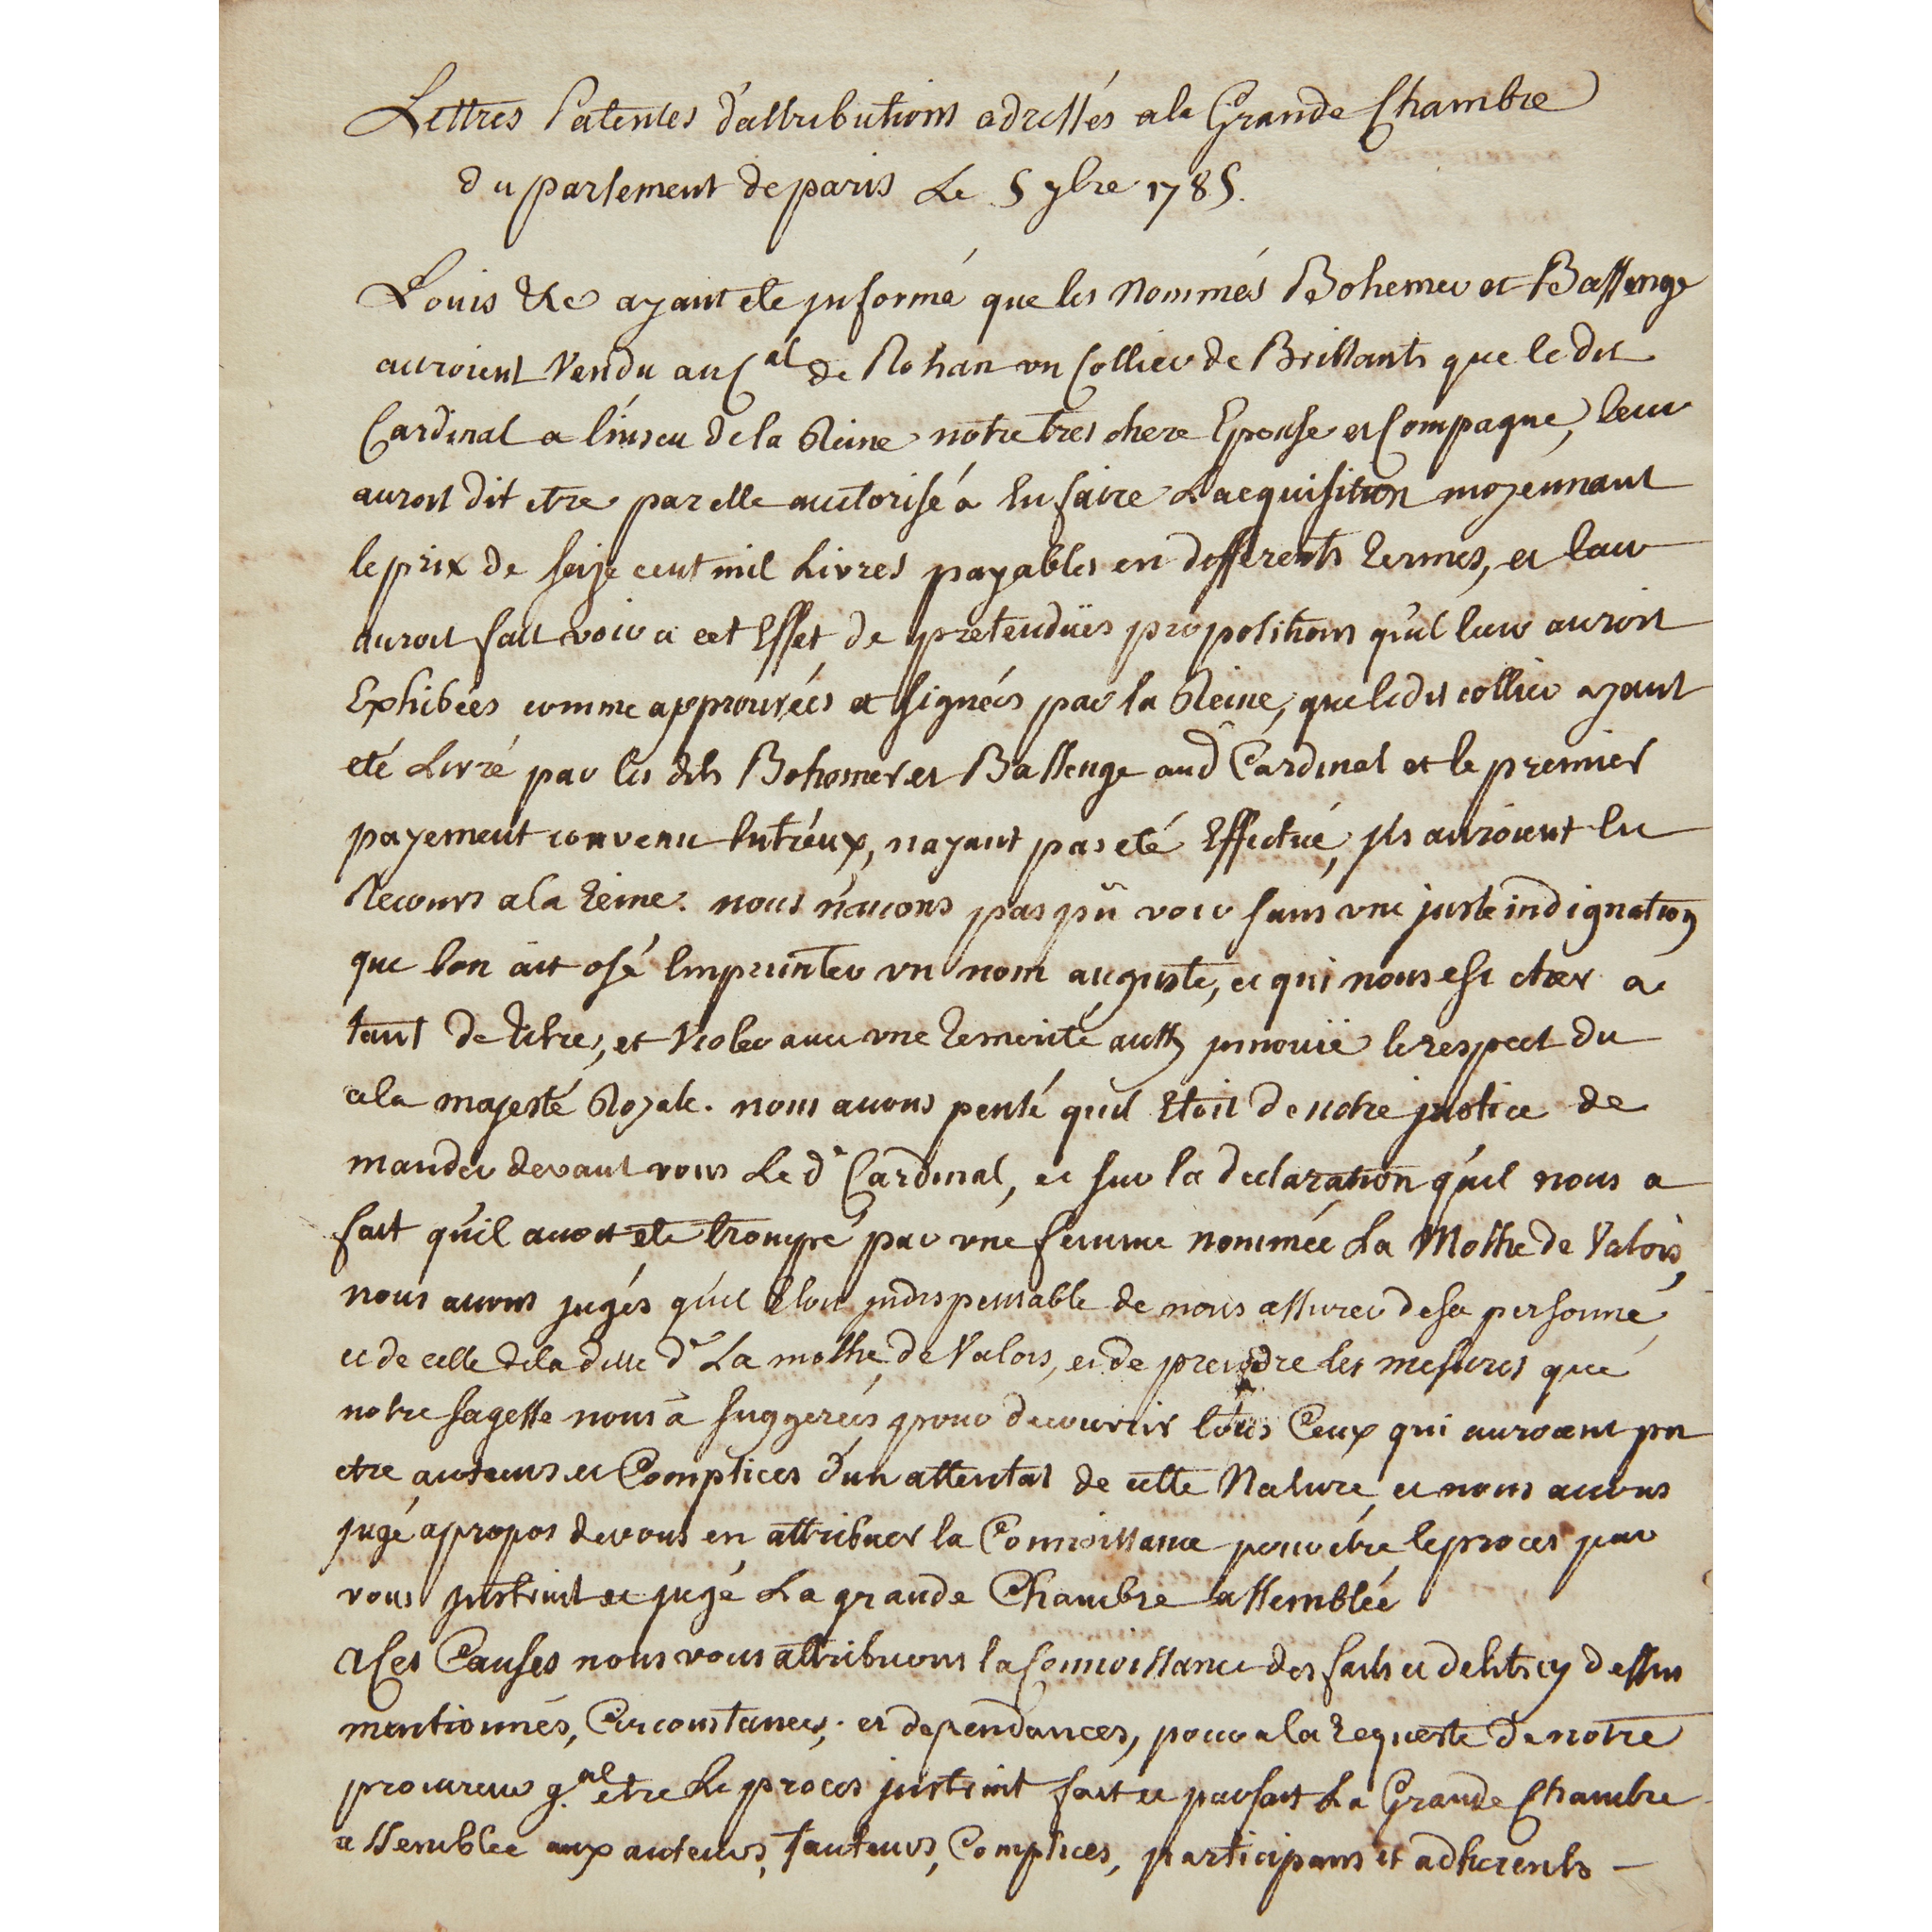 Lettres Patentes d'attributions adressés a la Grande Chambre
du parlement de paris Le 5 7bre 1785.
Louis &c ayant eté informé que les nommés Bohemer et Bassenge
auroient Vendu au Cal de Rohan un Collier de Brillants que le dit
Cardinal a l'inscu de la Reine notre tres chere Epouse et Compagne, leur
auroit dit etre par elle autorisé a En faire L'acquisition moyennant
le prix de seize cent mil Livres payables en differents termes, et leur
auroit fait voir a cet Effet de pretenduës propositions qu'il leur auroit
Exhibées comme approuvées et signées par la Reine, que le dit collier ayant
eté Livré par les dits Bohemer et Bassenge aud Cardinal et le premier
payement convenu Entr'eux, n'ayant pas eté Effectué, ils auroient Eu
Recours a la Reine. nous n'avons pas pû voir sans une juste indignation
que l'on ait osé Emprunter un nom auguste, et qui nous est cher a
tant de titres, et Violer avec une temerité aussy innouië le respect du
a la majesté Royale. nous avons pensé qu'il Etoit de notre justice de
mander devant nous Le dt Cardinal, et sur la declaration qu'il nous a
fait qu'il avoit eté trompé par une femme nommée La Mothe de Valois,
nous avons jugés qu'il Etoit indispensable de nous assurer de sa personne
et de celle de la ditte de La mothe de Valois, et de prendre les mesures que
notre sagesse nous a suggerées pour decouvrir tous Ceux qui auroient pu
etre auteurs et Complices d'un attentat de cette Nature, et nous avons
jugé a propos de vous en attribuer la Connoissance pour etre le proces par
vous instruit et jugé La grande Chambre assemblée
A Ces Causes nous vous attribuons la Connoissance des faits et delits cy dessus
mentionnés, Circonstances, et dependances, pour a la requeste de notre
procureur g.al etre Le proces instruit fait et parfait La Grande Chambre
assemblée aux auteurs, fauteurs, Complices, participans et adherents —